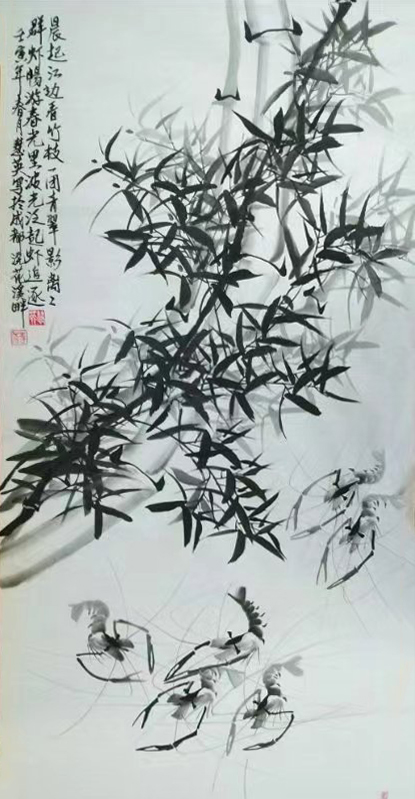 晨起江边看竹枝一团青翠影离〻
群虾畅游春光里波光泛起虾追逐
壬寅年春月慧英写于成都浣花溪畔